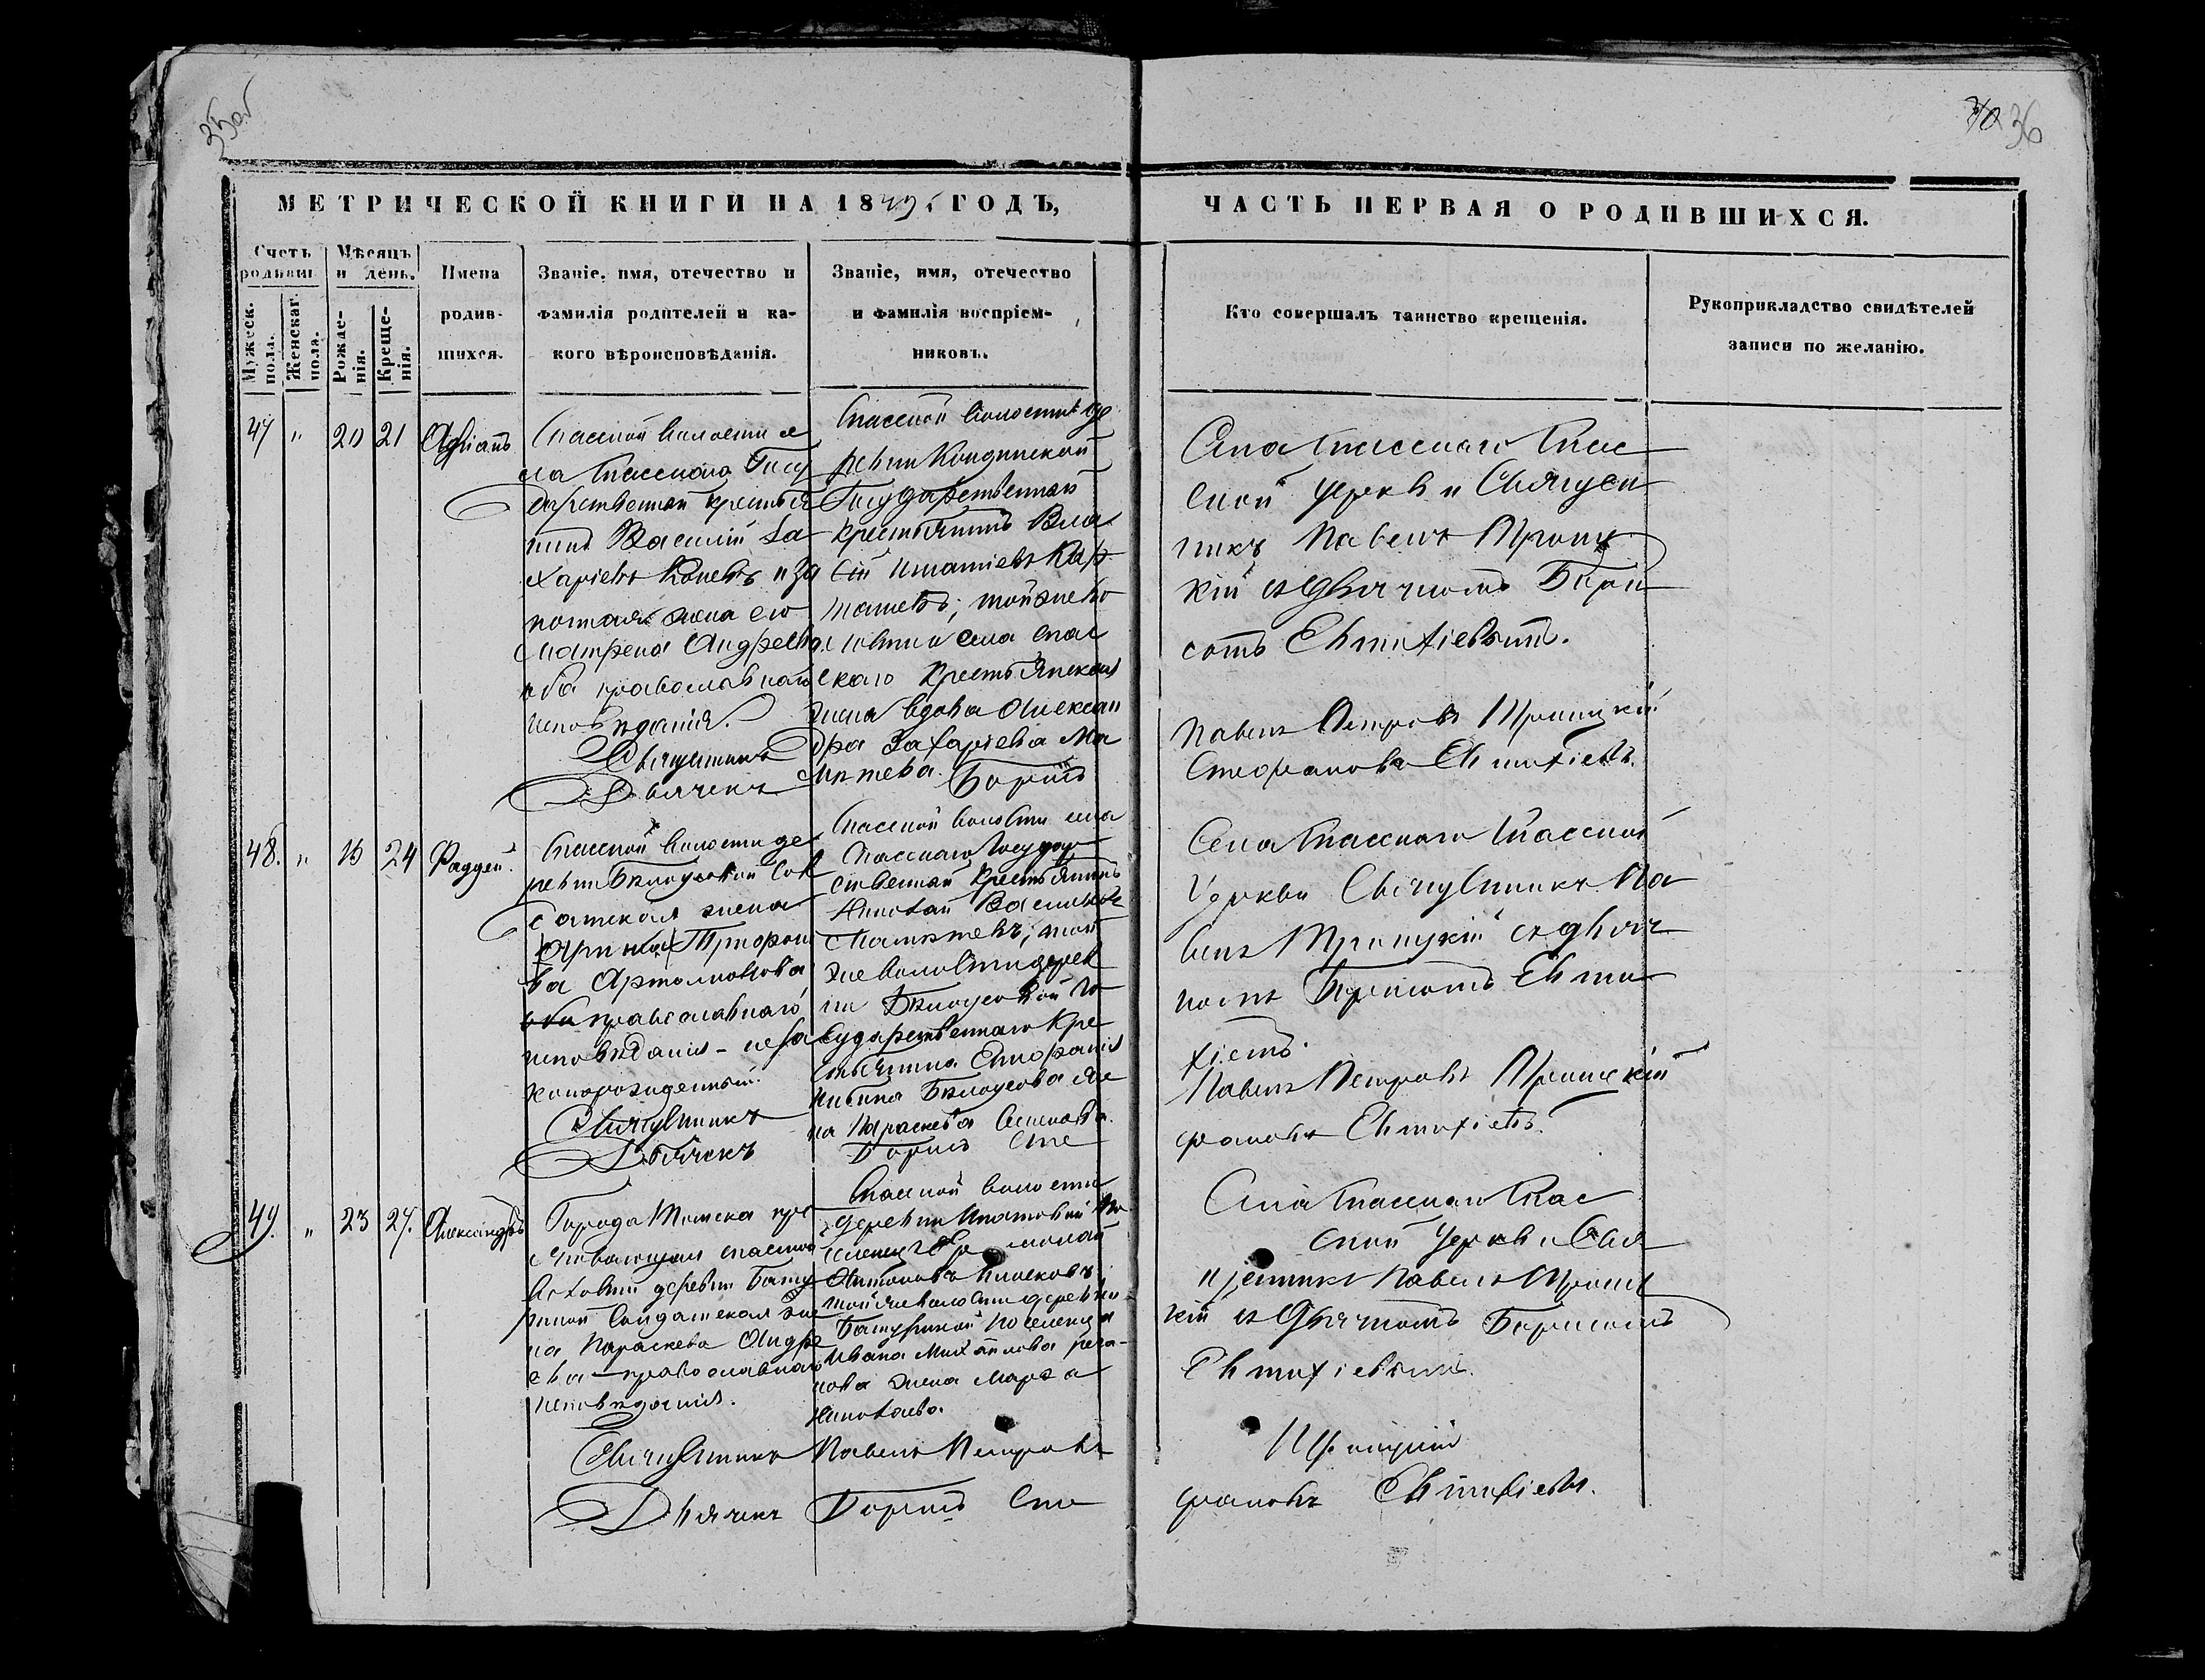 35об
36
МЕТРИЧЕСКОЙ КНИГИ НА 18 ГОДЪ,
ЧАСТЬ ПЕРВАЯ О РОДИВШИХСЯ.
Счетъ родивш.
Мужеск. пола.
Женскаг. пола.
Мѣсяцъ и день.
Рожде-
нія.
Креще-
нія.
Имена
родив-
шихся.
Званіе, имя, отечество и
фамилія родителей и ка-
кого вѣроисповѣданія.
Званіе, имя, отечество
и фамилія воспріем-
никовъ.
Кто совершалъ таинство крещенія.
Рукоприкладство свидѣтелей
записи по желанію.
47 " 20 21 Адріанъ
Спасской волости се
ла Спасскаго Госу
дарственной крестья
нинъ Василій За
харіевъ Коневъ и за
конная жена его
Матрена Андреева
оба православнаго
исповѣданія.
Священникъ
Дьячекъ
Спасской волости де
ревни Кондинской
Государственной
крестьянинъ Вла
сій Игнатіевъ Кар
ташевъ; той же во
лости и села Спас
скаго Крестьянская
жена вдова Алексан
дра Захаріева Ма
мѣтева. Борисъ
Села Спасскаго Спас
ской церкви Священ
никъ Павелъ Троиц
кій съ дьячкомъ Бори
сомъ Евтихіевымъ.
Павелъ Петровъ Троицкій
Стефановъ Евтихіевъ.
48. " 24 Фаддей.
Спасской волости де
ревни Бѣлоусовой сол
датская жена
Ирина
ва Артамонова
оба православнаго
исповѣданія - неза
коннорожденный.
Священникъ
Дьячекъ
Спасской волости села
Спасскаго Государ
ственной Крестьянинъ
Николай Васильевъ
Мамѣтевъ; той
же волости дерев
ни Бѣлоусовой Го
сударственнаго Кре
стьянина
Бѣлоусова же
на Параскева Семенова.
Борисъ Сте
Села Спасскаго Спасской
Церкви Священникъ Па
велъ Троицкій съ дьяч
комъ Борисомъ Евти
хіевъ.
Павелъ Петровъ Троицкій
фановъ Евтихіевъ.
49. " 23 27. Александръ
Города Томска про
живающая Спасской
волости деревни Бату
риной Солдатская же
на Параскева Андре
ева - православнаго
исповѣданія.
Священникъ
Дьячекъ
Спасской волости
деревни Ипатовой По
селенецъ
Антоновъ
той же волости деревни
Батуриной поселенца
Ивана Михайлова
нова жена Марѳа
Николаева.
Павелъ Петровъ
Борисъ Сте
Села Спасскаго Спас
ской Церкви Свя
щенникъ Павелъ Троиц
кій съ Дьячкомъ Борисомъ
Евтихіевымъ.
Троицкій
фановъ Евтихіевъ.